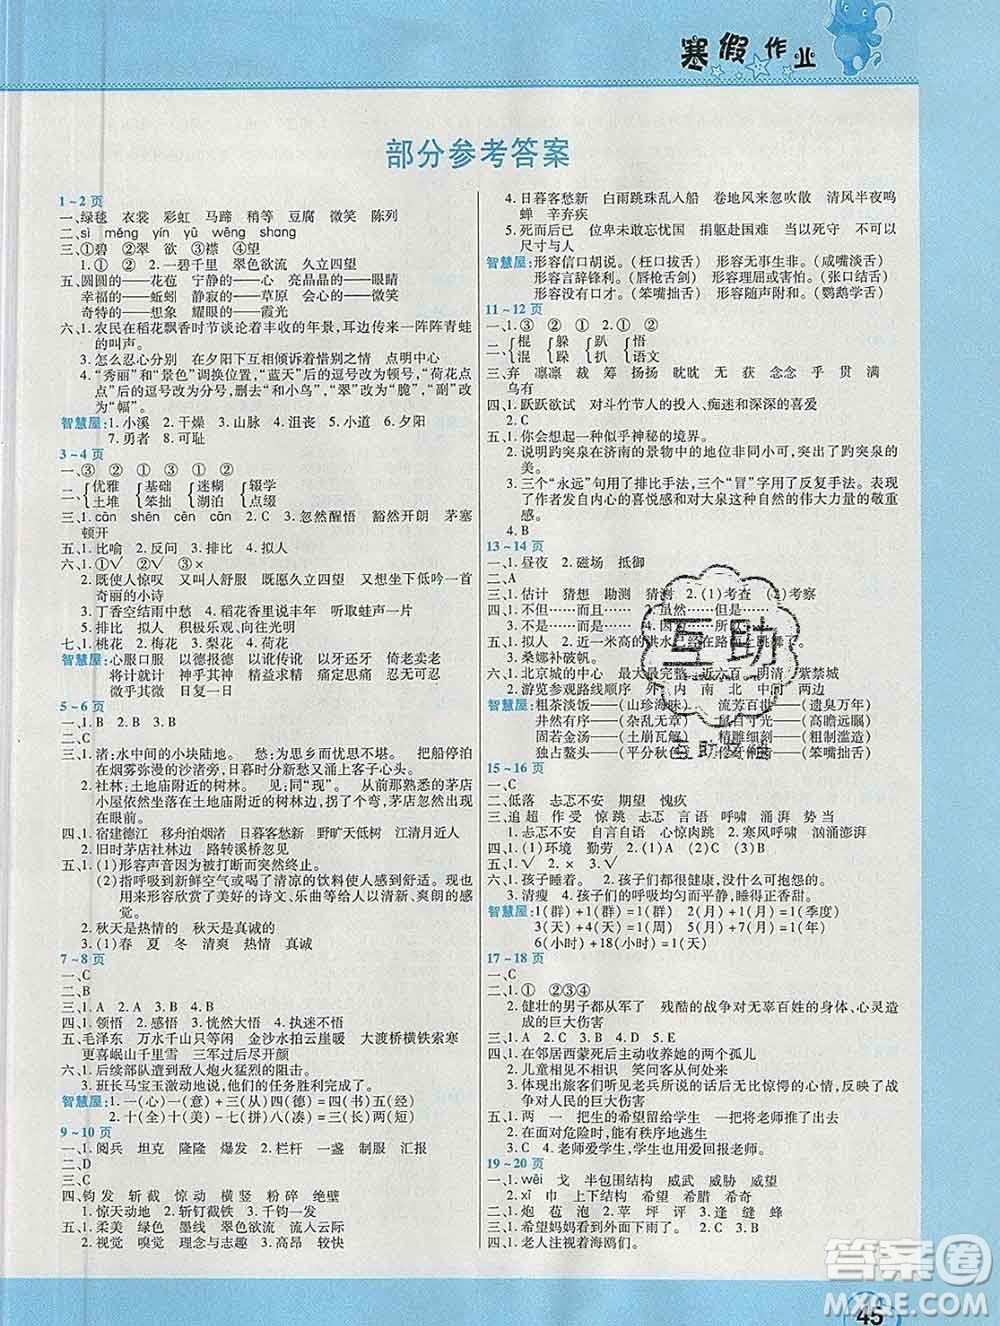 寒假作业
部分参考答案
1~2页
一、绿毯 衣裳 彩虹 马蹄 稍等 豆腐 微笑 陈列
二、sì měng yín yǔ wēng shang
三、①碧 ②翠 欲 ③襟 ④望
1.① ② 2.一碧千里 翠色欲流 久立四望
五、圆圆的——花苞 宁静的——心 亮晶晶的——眼睛
幸福的——蚯蚓 静寂的——草原 会心的——微笑
奇特的——想象 耀眼的——霞光
六、1.农民在稻花飘香时节谈论着丰收的年景,耳边伴着一阵阵青蛙
的叫声。
3.怎么忍心分别 在夕阳下互相倾诉着惜别之情 点明中心
4.“秀丽”和“景色”调换位置,“蓝天”后的逗号改为顿号,“荷花点
点”后的逗号改为分号,删去“和小鸟”,“翠”改为“脆”,“副”改
为“幅”。
智慧屋:1.小溪 2.干燥 3.山脉 4.沮丧 5.小道 6.夕阳
7.勇者 8.可耻
3~4页
一、③ ② ① ②
二、{优雅 {基础 {迷糊 {辍学
{土堆 {笨拙 {湖泊 {点缀
三、1.cān shēn cēn cān 2.C 3.忽然醒悟 豁然开朗 茅塞
顿开
五、1.比喻 2.反问 3.排比 4.拟人
六、1.①√ ②√ ③×
2.既使人惊叹 又叫人舒服 既愿久立四望 又想坐下低吟一首
奇丽的小诗
3.丁香空结雨中愁 4.稻花香里说丰年 听取蛙声一片
5.排比 拟人 积极乐观、向往光明
七、1.桃花 2.梅花 3.梨花 4.荷花
智慧屋:心服口服 以德报德 以讹传讹 以牙还牙 忍无可忍
将计就计 神乎其神 精益求精 痛定思痛 数不胜数
微乎其微 日复一日
5~6页
一、1.B 2.B 3.B
二、C
三、1.渚:水中间的小块陆地。 愁:为思乡而忧愁不堪。 把船停泊
在烟雾弥漫的沙渚旁,日暮时分新愁又涌上游子心头。
2.社林:土地庙附近的树林。 见:同“现”。 从前那熟悉的茅店
小屋坐落在土地庙附近的树林中,拐了个弯,茅店忽然出现在
眼前。
四、1.宿建德江 移舟泊烟渚 日暮客愁新 野旷天低树 江清月近人
2.旧时茅店社林边 路转溪桥忽见
五、1.(1)形容声音因为被打断而突然停止。
(2)指呼吸到新鲜空气或喝了清凉的饮料使人感到舒服。现也
用来形容欣赏了美好的诗文、乐曲后清新、爽朗的感
觉。
2.秋天是热情的 秋天是真诚的
3.(1)春 夏 冬 清爽 热情 真诚
7~8页
一、C
二、B
三、1.A 2.A 3.B 4.B
四、1.领悟 2.感悟 3.觉悟 4.执迷不悟
五、毛泽东 万水千山只等闲 金沙水拍云崖暖 大渡桥横铁索寒
更喜岷山千里雪 三军过后尽开颜
六、1.后续部队受到敌人炮火猛烈的阻击。
3.班长马宝玉激动地说,他们的任务胜利完成了!
智慧屋:1.一(心)+一(意)+三(从)+四(德)=四(书)+五(经)
2.十(全)+十(美)-七(拼)-八(凑)=三(长)+两(短)
9~10页
一、1.阅兵 坦克 隆隆 爆发 2.栏杆 一盏 制服 汇报
二、D
三、C
四、钧发 斩截 惊动 横竖 粉碎 绝壁
1.惊天动地 2.斩钉截铁 3.千钧一发 横七竖八
五、1.柔美 绿色 墨线 翠色欲流 轻轻流入云际
2.视觉 嗅觉 理念与志趣 3.高昂 较快
4.日暮客愁新 白雨跳珠乱入船 卷地风来忽吹散 清风半夜鸣
蝉 辛弃疾
5.死而后已 位卑未敢忘忧国 捐躯赴国难 当以死守 不可以
尺寸与人
智慧屋:形容信口胡说。(枉口拔舌) 形容无事生非。(咸嘴淡舌)
形容言辞锋利。(唇枪舌剑) 形容理屈或害怕。(张口结舌)
形容没有口才。(笨嘴拙舌) 形容随声附和。(鹦鹉学舌)
11~12页
一、1.③ ② ① 2.① ②
二、{棍 {躲 {趴 {悟
{混 {跺 {扒 {语文
三、弃 凛凛 裁 筹 扬扬 眈眈 无 忽 念 乎 贯 满
乌有
四、1.跃跃欲试 对斗竹节人的投入、痴迷和深深的喜爱
2.C
五、1.你会想起一种似乎神秘的境界。
2.说明趵突泉在济南的景物中的地位非同小可,突出了趵突泉的
美。
3.三个“永远”句用了排比手法,三个“冒”字用了反复手法。表
现了作者发自内心的喜悦感和对大泉这种自然的伟大力量的敬重
感。
4.B
13~14页
一、1.昼夜 2.磁场 抵御
二、A
三、1.估计 猜想 勘测 猜测 2.(1)考查 (2)考察
四、1.不但……而且…… 2.虽然……但是……
3.不是……而是…… 4.因为……所以……
五、1.拟人 2.近一米高的洪水
3.桑娜补破帆。
六、1.北京城的中心 最大最完整 近六百 明清 紫禁城
2.游览参观路线顺序 外 内 南 北 中间 两边
智慧屋:粗茶淡饭——(山珍海味) 流芳百世——(遗臭万年)
井然有序——(杂乱无章) 鼠目寸光——(高瞻远瞩)
固若金汤——(土崩瓦解) 精雕细刻——(粗制滥造)
独占鳌头——(平分秋色) 伶牙俐齿——(笨嘴拙舌)
15~16页
一、C
二、低落 忐忑不安 期望 愧疚
三、追 超 作 受 惊 跳 忐忑 言语 呼啸 汹涌 势 当
1.忐忑不安 自言自语 心惊肉跳 2.寒风呼啸 汹涌澎湃
四、1.(1)环境 勤劳 2.(1)A (2)C
五、1.√ 2.× 3.√
六、1.孩子睡着。 2.孩子们都很健康,没什么可抱怨的。
3.清瘦 4.孩子们的呼吸均匀而平静,睡得正香甜。
智慧屋:1(群)+1(群)=1(群) 2(月)+1(月)=1(季度)
3(天)+4(天)=1(周) 9(月)+3(月)=1(年)
6(小时)+18(小时)=1(天)
17~18页
一、C
二、1.① ②③④
2.健壮的男子都从军了 残酷的战争对无辜百姓的身体、心灵造
成的巨大伤害
三、1.C 2.A 3.D 4.D 5.E
四、1.在邻居西蒙死后主动收养她的两个孤儿
2.儿童相见不相识 笑问客从何处来
3.体现出旅客们听见老兵所说的话后无比惊愕的心情,反映了战
争对人民的巨大伤害
五、1.两 一 把生的希望留给学生 一把将老师推了出去
2.在面对危险时,能有秩序地逃生
3.C 4.老师爱学生,学生也能爱回报老师。
19~20页
一、1.wēi 戈 半包围结构 威武 威胁 威望
2.xī 巾 上下结构 希望 希腊 希冀
二、1.炮 苞 泡 2.苹 坪 评 3.逢 缝 蜂
三、1.希望妈妈看到外面下雨了。 2.C 3.B
四、1.老人注视着海鸥们。
45
互助
互助文具
答案圈
MXQE.COM